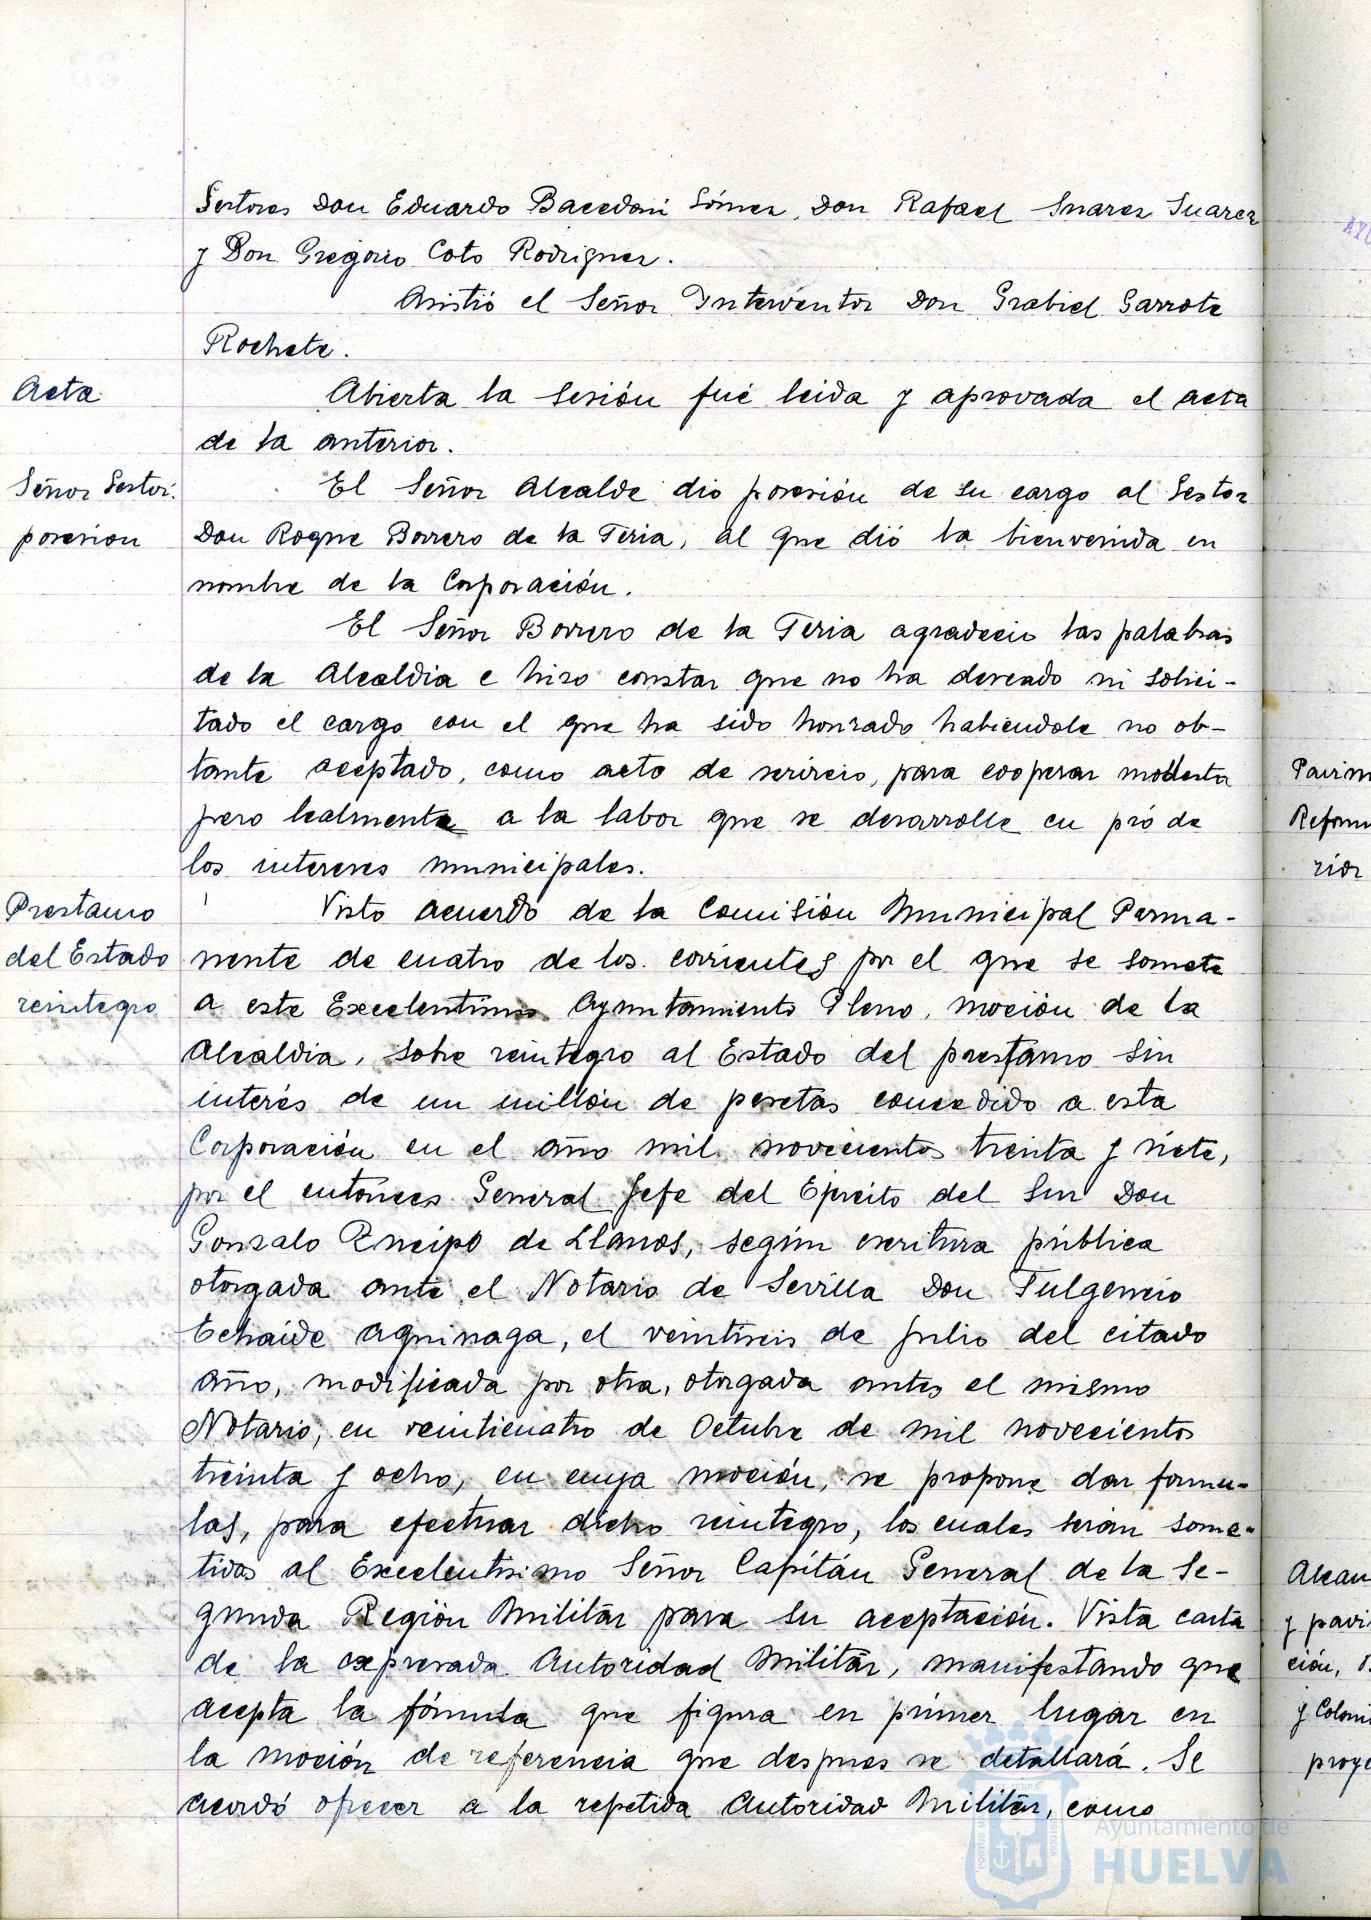 Gestores Don Eduardo Bacedoni Gómez, Don Rafael Suarez Suarez
y Don Gregorio Coto Rodriguez.
Asistió el Señor Interventor Don Grabiel Garrote
Rochete.
Acta
Abierta la sesión fué leida y aprovada el acta
de la anterior.
Señor Gestor.
posesion
El Señor Alcalde dio posesión de su cargo al Gestor
Don Roque Borrero de la Feria, al que dió la bienvenida en
nombre de la Corporación.
El Señor Borrero de la Feria agradecio las palabras
de la Alcaldia e hizo constar que no ha deseado ni solici-
tado el cargo con el que ha sido honrado habiendole no ob-
tante aceptado, como acto de servicio, para cooperar modesta
pero lealmente a la labor que se desarrolle en pró de
los intereses municipales.
Prestamo
del Estado
reintegro
Visto acuerdo de la Comisión Municipal Perma-
nente de cuatro de los corrientes por el que se somete
a este Excelentisimo Ayuntamiento Pleno, moción de la
Alcaldia, sobre reintegro al Estado del prestamo sin
interés de un millón de pesetas concedido a esta
Corporación en el año mil novecientos treinta y siete,
por el entonces General Jefe del Ejercito del Sur Don
Gonzalo Queipo de Llanos, según escritura pública
otorgada ante el Notario de Sevilla Don Fulgencio
Echaide Aguinaga, el veintiseis de julio del citado
año, modificada por otra, otorgada antes el mismo
Notario, en veinticuatro de Octubre de mil novecientos
treinta y ocho, en cuya moción, se propone dar formu-
las, para efectuar dicho reintegro, los cuales serán some-
tidas al Excelentisimo Señor Capitán General de la Se-
gunda Región Militar para su aceptación. Vista carta
de la expresada Autoridad Militar, manifestando que
acepta la fórmula que figura en primer lugar en
la moción de referencia que despues se detallará. Se
acordó ofrecer a la repetida Autoridad Militar, como
AYU
Pavim
Reform
rior
y pavi
ción,
y Coloni
proye
Ayuntamiento de
HUELVA